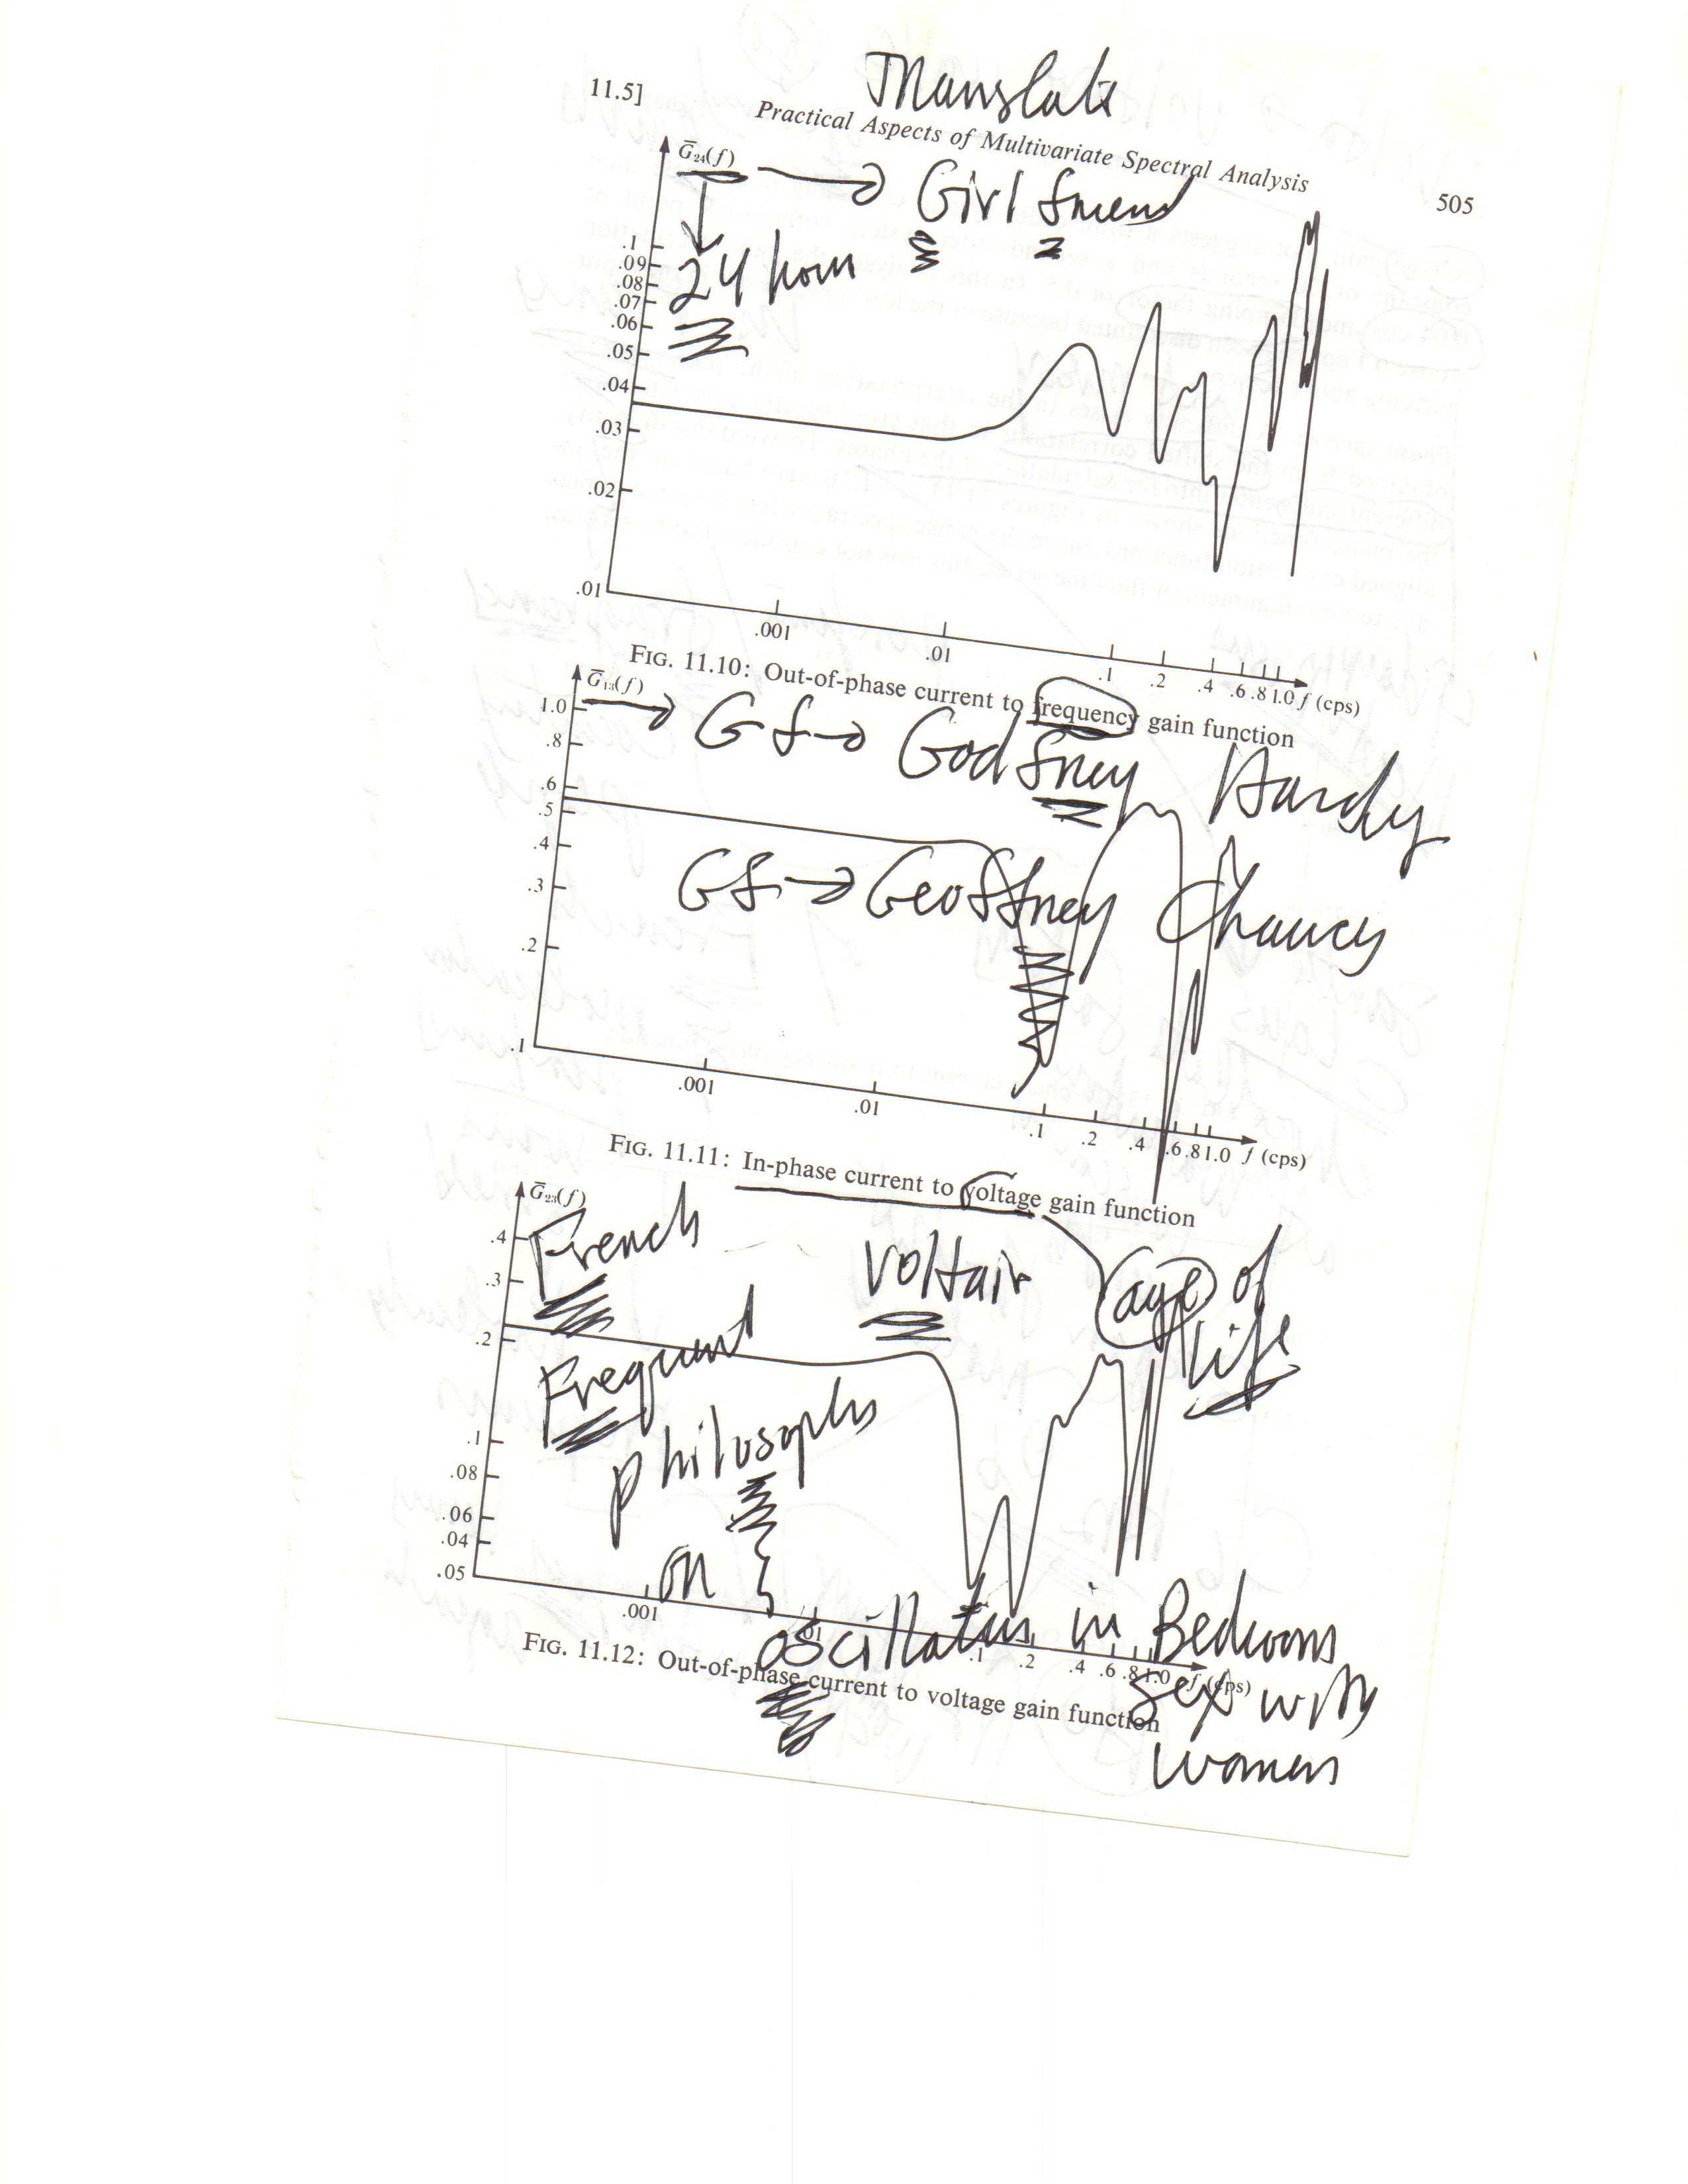 Translate
11.5]
Practical Aspects of Multivariate Spectral Analysis
505
G̅₂₄(f) → Girl friend
24 hour
.1
.09
.08
.07
.06
.05
.04
.03
.02
.01
.001 .01 .1 .2 .4 .6 .8 1.0 f (cps)
FIG. 11.10: Out-of-phase current to frequency gain function
G̅₁₃(f) → G f → Godfrey Hardy
1.0
.8
.6
.5
.4
Gf → Geoffrey Chaucer
.3
.2
.1
.001 .01 .1 .2 .4 .6 .8 1.0 f (cps)
FIG. 11.11: In-phase current to voltage gain function
G̅₂₃(f)
French
Voltair
age of
life
.4
.3
.2
Frequent
philosophs
.1
.08
.06
.04
.05
on
oscillations in Bedrooms
sex with
women
.001 .01 .1 .2 .4 .6 .8 1.0 f (cps)
FIG. 11.12: Out-of-phase current to voltage gain function